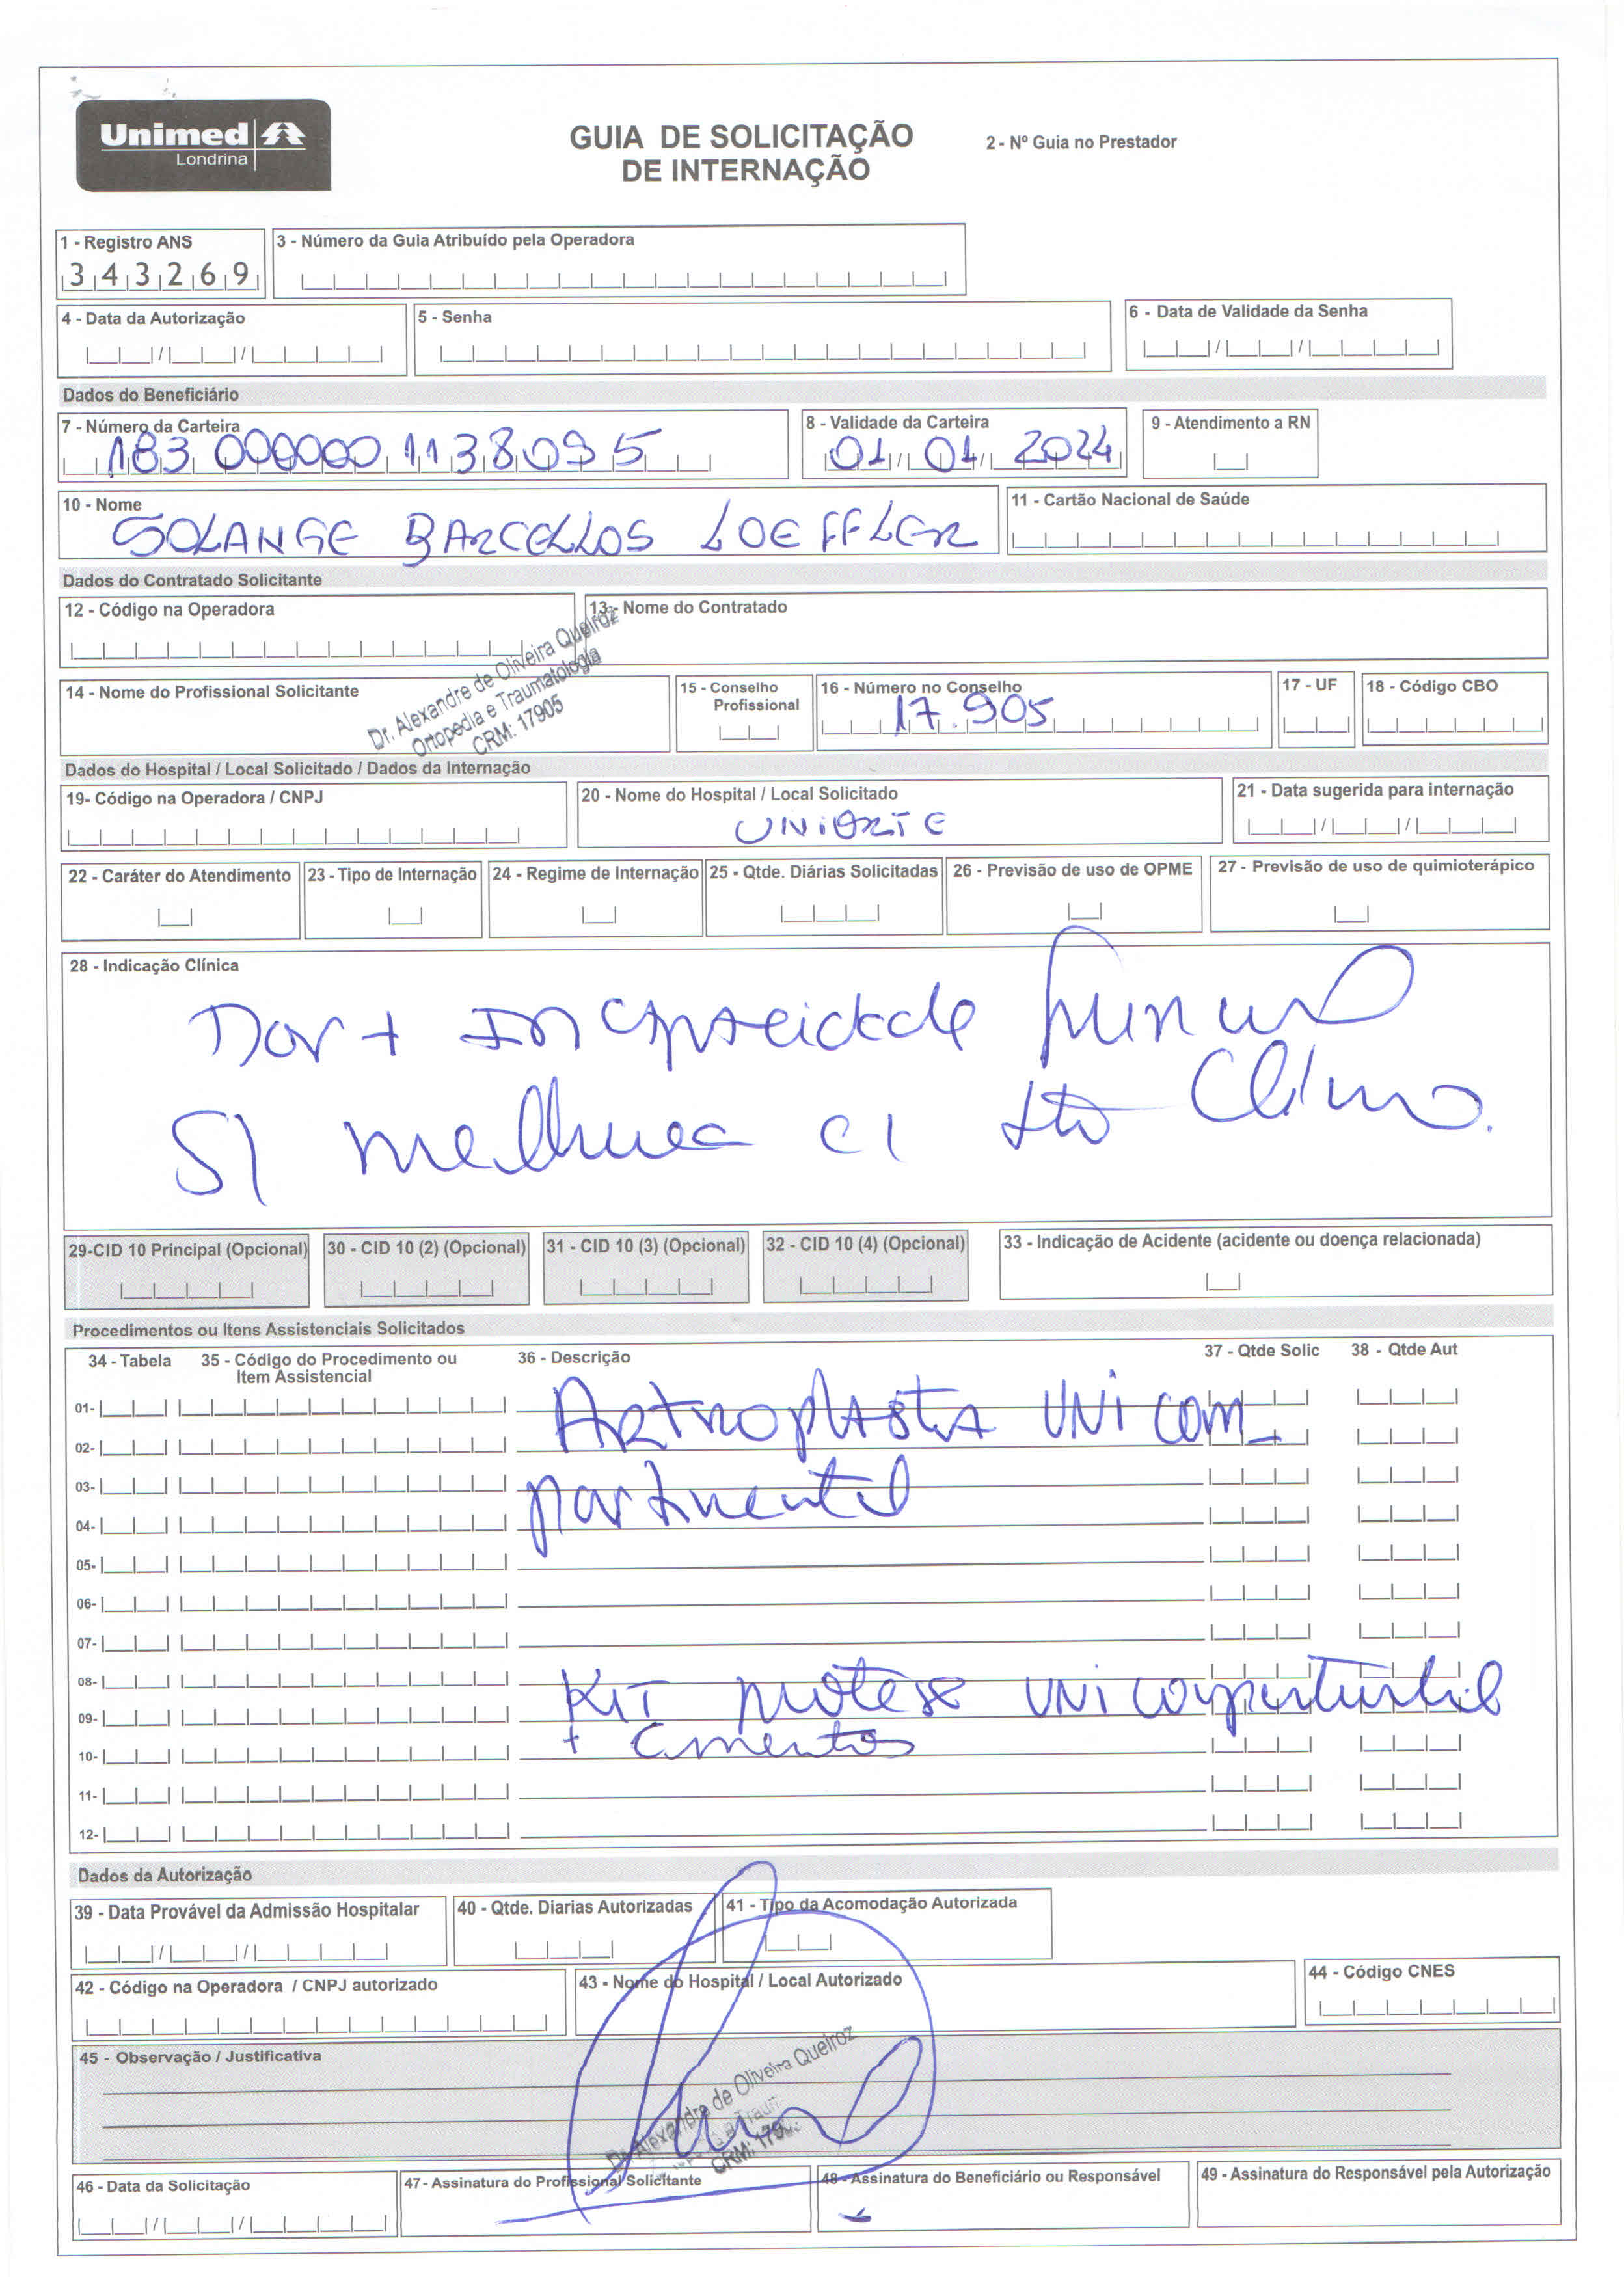 Unimed
Londrina
GUIA DE SOLICITAÇÃO
DE INTERNAÇÃO
2 - Nº Guia no Prestador
1 - Registro ANS
343269
3 - Número da Guia Atribuído pela Operadora
4 - Data da Autorização
5 - Senha
6 - Data de Validade da Senha
Dados do Beneficiário
7 - Número da Carteira
183 000000 1138095
8 - Validade da Carteira
01/04/2024
9 - Atendimento a RN
10 - Nome
SOLANGE BARCELLOS LOEFFLER
11 - Cartão Nacional de Saúde
Dados do Contratado Solicitante
12 - Código na Operadora
13 - Nome do Contratado
14 - Nome do Profissional Solicitante
Dr. Alexandre de Oliveira Queiroz
Ortopedia e Traumatologia
CRM: 17905
15 - Conselho
Profissional
16 - Número no Conselho
17.905
17 - UF
18 - Código CBO
Dados do Hospital / Local Solicitado / Dados da Internação
19- Código na Operadora / CNPJ
20 - Nome do Hospital / Local Solicitado
UNIORTE
21 - Data sugerida para internação
22 - Caráter do Atendimento
23 - Tipo de Internação
24 - Regime de Internação
25 - Qtde. Diárias Solicitadas
26 - Previsão de uso de OPME
27 - Previsão de uso de quimioterápico
28 - Indicação Clínica
Dor + Incapacidade
S/ melhora c/ tto Clínico.
29-CID 10 Principal (Opcional)
30 - CID 10 (2) (Opcional)
31 - CID 10 (3) (Opcional)
32 - CID 10 (4) (Opcional)
33 - Indicação de Acidente (acidente ou doença relacionada)
Procedimentos ou Itens Assistenciais Solicitados
34 - Tabela
35 - Código do Procedimento ou
Item Assistencial
36 - Descrição
37 - Qtde Solic
38 - Qtde Aut
01-
Artroplastia UNicom-
02-
03-
partimental
04-
05-
06-
07-
08-
KIT protese UNicompartimental
09-
+ Cimentos
10-
11-
12-
Dados da Autorização
39 - Data Provável da Admissão Hospitalar
40 - Qtde. Diarias Autorizadas
41 - Tipo da Acomodação Autorizada
42 - Código na Operadora / CNPJ autorizado
43 - Nome do Hospital / Local Autorizado
44 - Código CNES
45 - Observação / Justificativa
Dr. Alexandre de Oliveira Queiroz
46 - Data da Solicitação
47- Assinatura do Profissional Solicitante
48 - Assinatura do Beneficiário ou Responsável
49 - Assinatura do Responsável pela Autorização